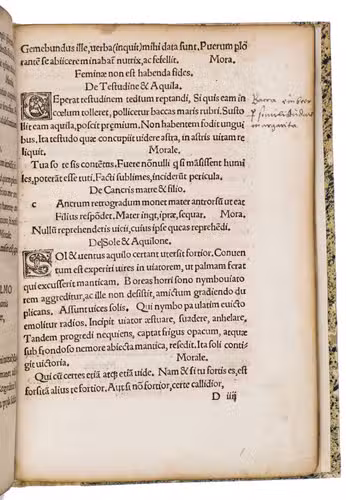 Gemebundus ille, uerba (inquit) mihi data sunt. Puerum plo
rantē se abiicere minabať nutrix, ac fefellit. Mora.
Feminæ non est habenda fides.
De Testudine & Aquila.
CEperat testudinem tedium reptandi, Si quis eam in
cœlum tolleret, pollicetur baccas maris rubri. Sustu
lit eam aquila, poscit præmium. Non habentem fodit ungui
bus, Ita testudo quæ concupiuit uidere astra, in astris uitam re
liquit. Morale.
Tua sorte sis contētus. Fuere nōnulli q si māsissent humi
les, poterāt esse tuti. Facti sublimes, inciderūt pericula.
De Cancris matre & filio.
c Ancrum retrogradum monet mater antrorsū ut eat
Filius respōdet. Mater inqt, i præ, sequar. Mora.
Nullū reprehenderis uicii, cuius ipse queas reprehēdi.
De Sole & Aquilone.
SOl & uentus aquilo certant uter sit fortior. Conuen
tum est experiri uires in uiatorem, ut palmam ferat
qui excusserit manticam. Boreas horrisono nymbo uiato
rem aggreditur, at ille non desistit, amictum gradiendo du
plicans. Assumit uices solis. Qui nymbo paulatim euicto
emolitur radios. Incipit uiator æstuare, sudare, anhelare,
Tandem progredi nequiens, captat frigus opacum, atquæ
sub frondoso nemore abiecta mantica, resedit. Ita soli conti-
git uictoria. Morale.
Qui cū certes etiā atqȝ etiā uide. Nam & si tu fortis es, est
forsitā alius te fortior. Aut si nō fortior, certe callidior,
D iiij
margarita